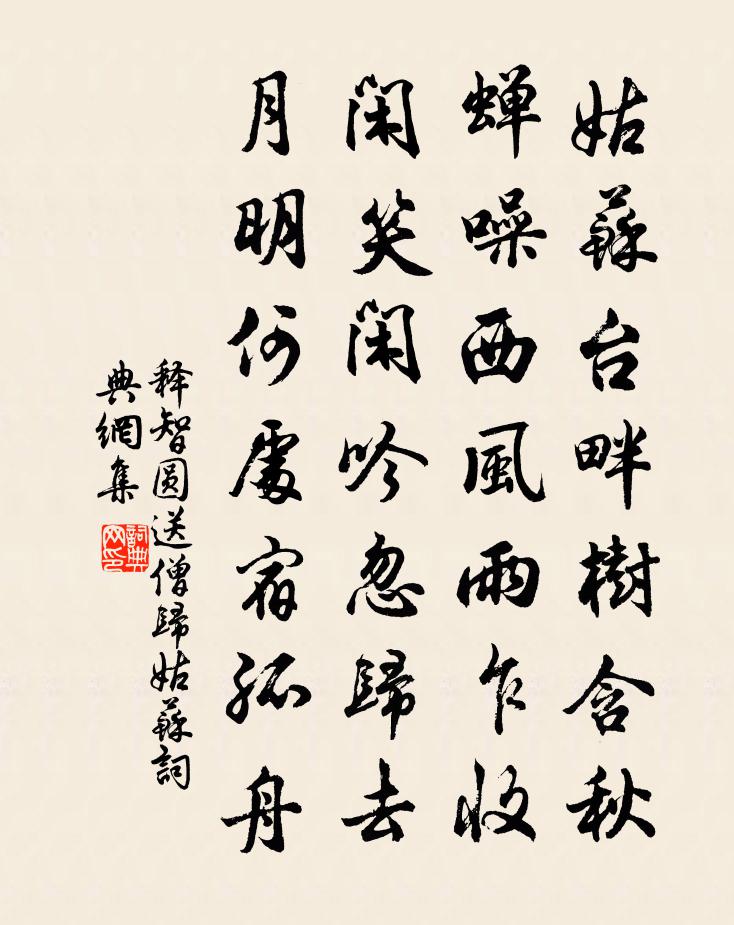 姑蘇台畔樹含秋
蝉噪西風雨乍收
闲笑闲吟忽歸去
月明何處宿孤舟
释智圆送僧歸姑蘇詞
典網集
詞典网印